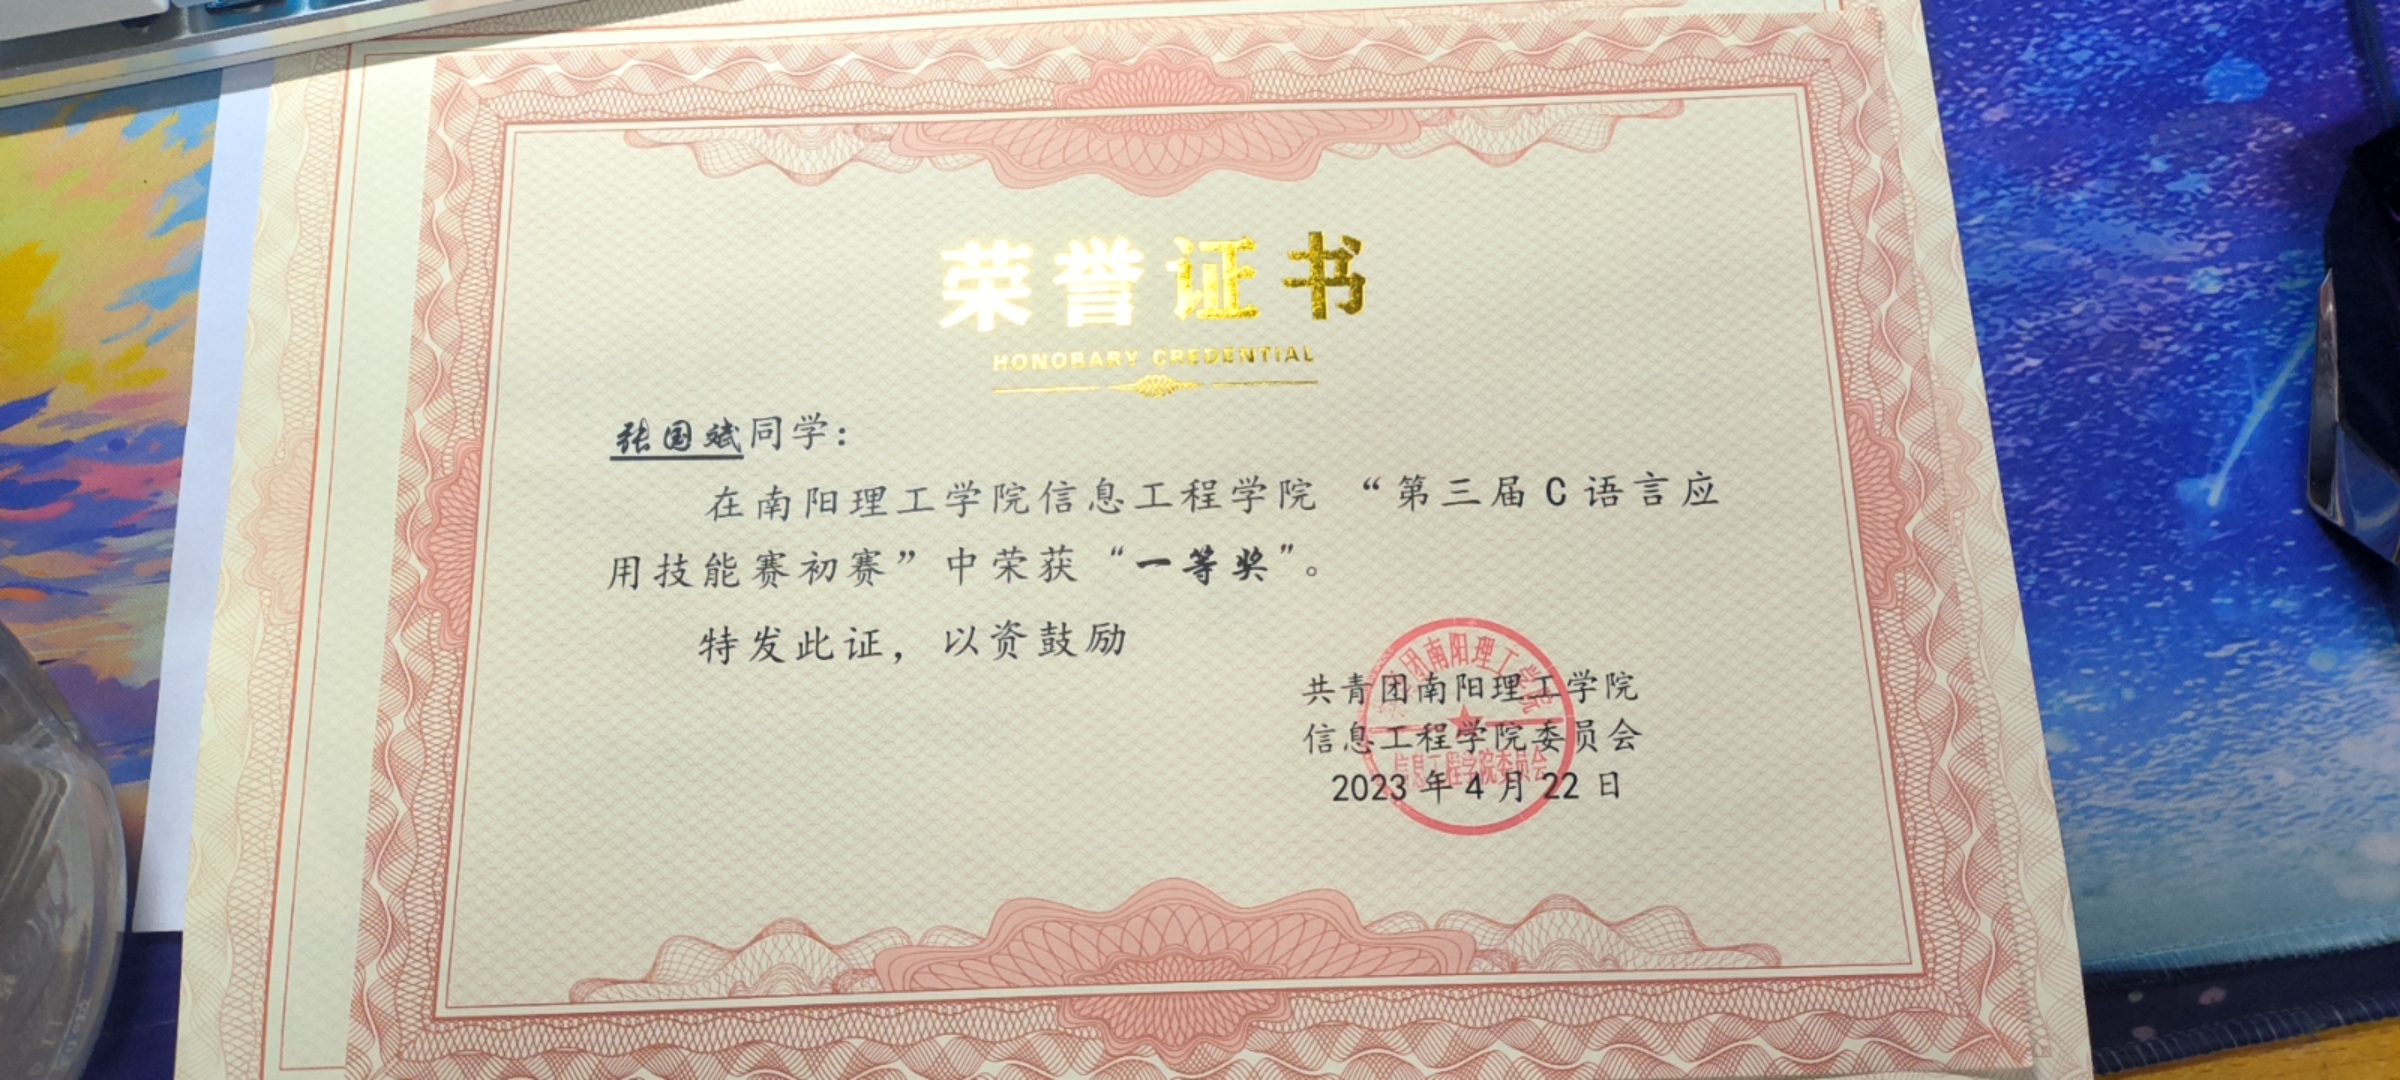 荣誉证书
HONORARY CREDENTIAL
张国斌同学：
在南阳理工学院信息工程学院 “第三届 C 语言应
用技能赛初赛” 中荣获 “一等奖”。
特发此证，以资鼓励
共青团南阳理工学院
信息工程学院委员会
2023 年 4 月 22 日
团南阳理工学院
信息工程学院委员会